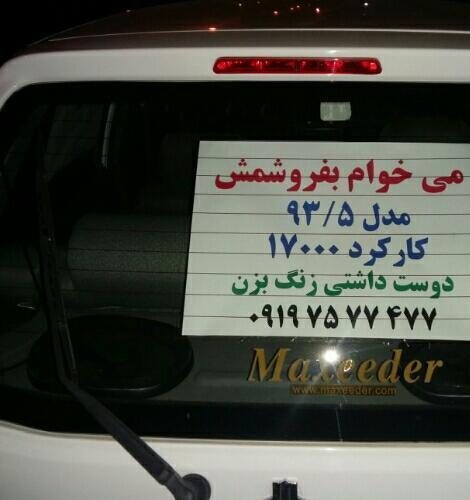 می خوام بفروشمش
مدل ۹۳/۵
کارکرد ۱۷۰۰۰
دوست داشتی زنگ بزن
۰۹۱۹ ۷۵ ۷۷ ۴۷۷
Maxeeder
www.maxeeder.com